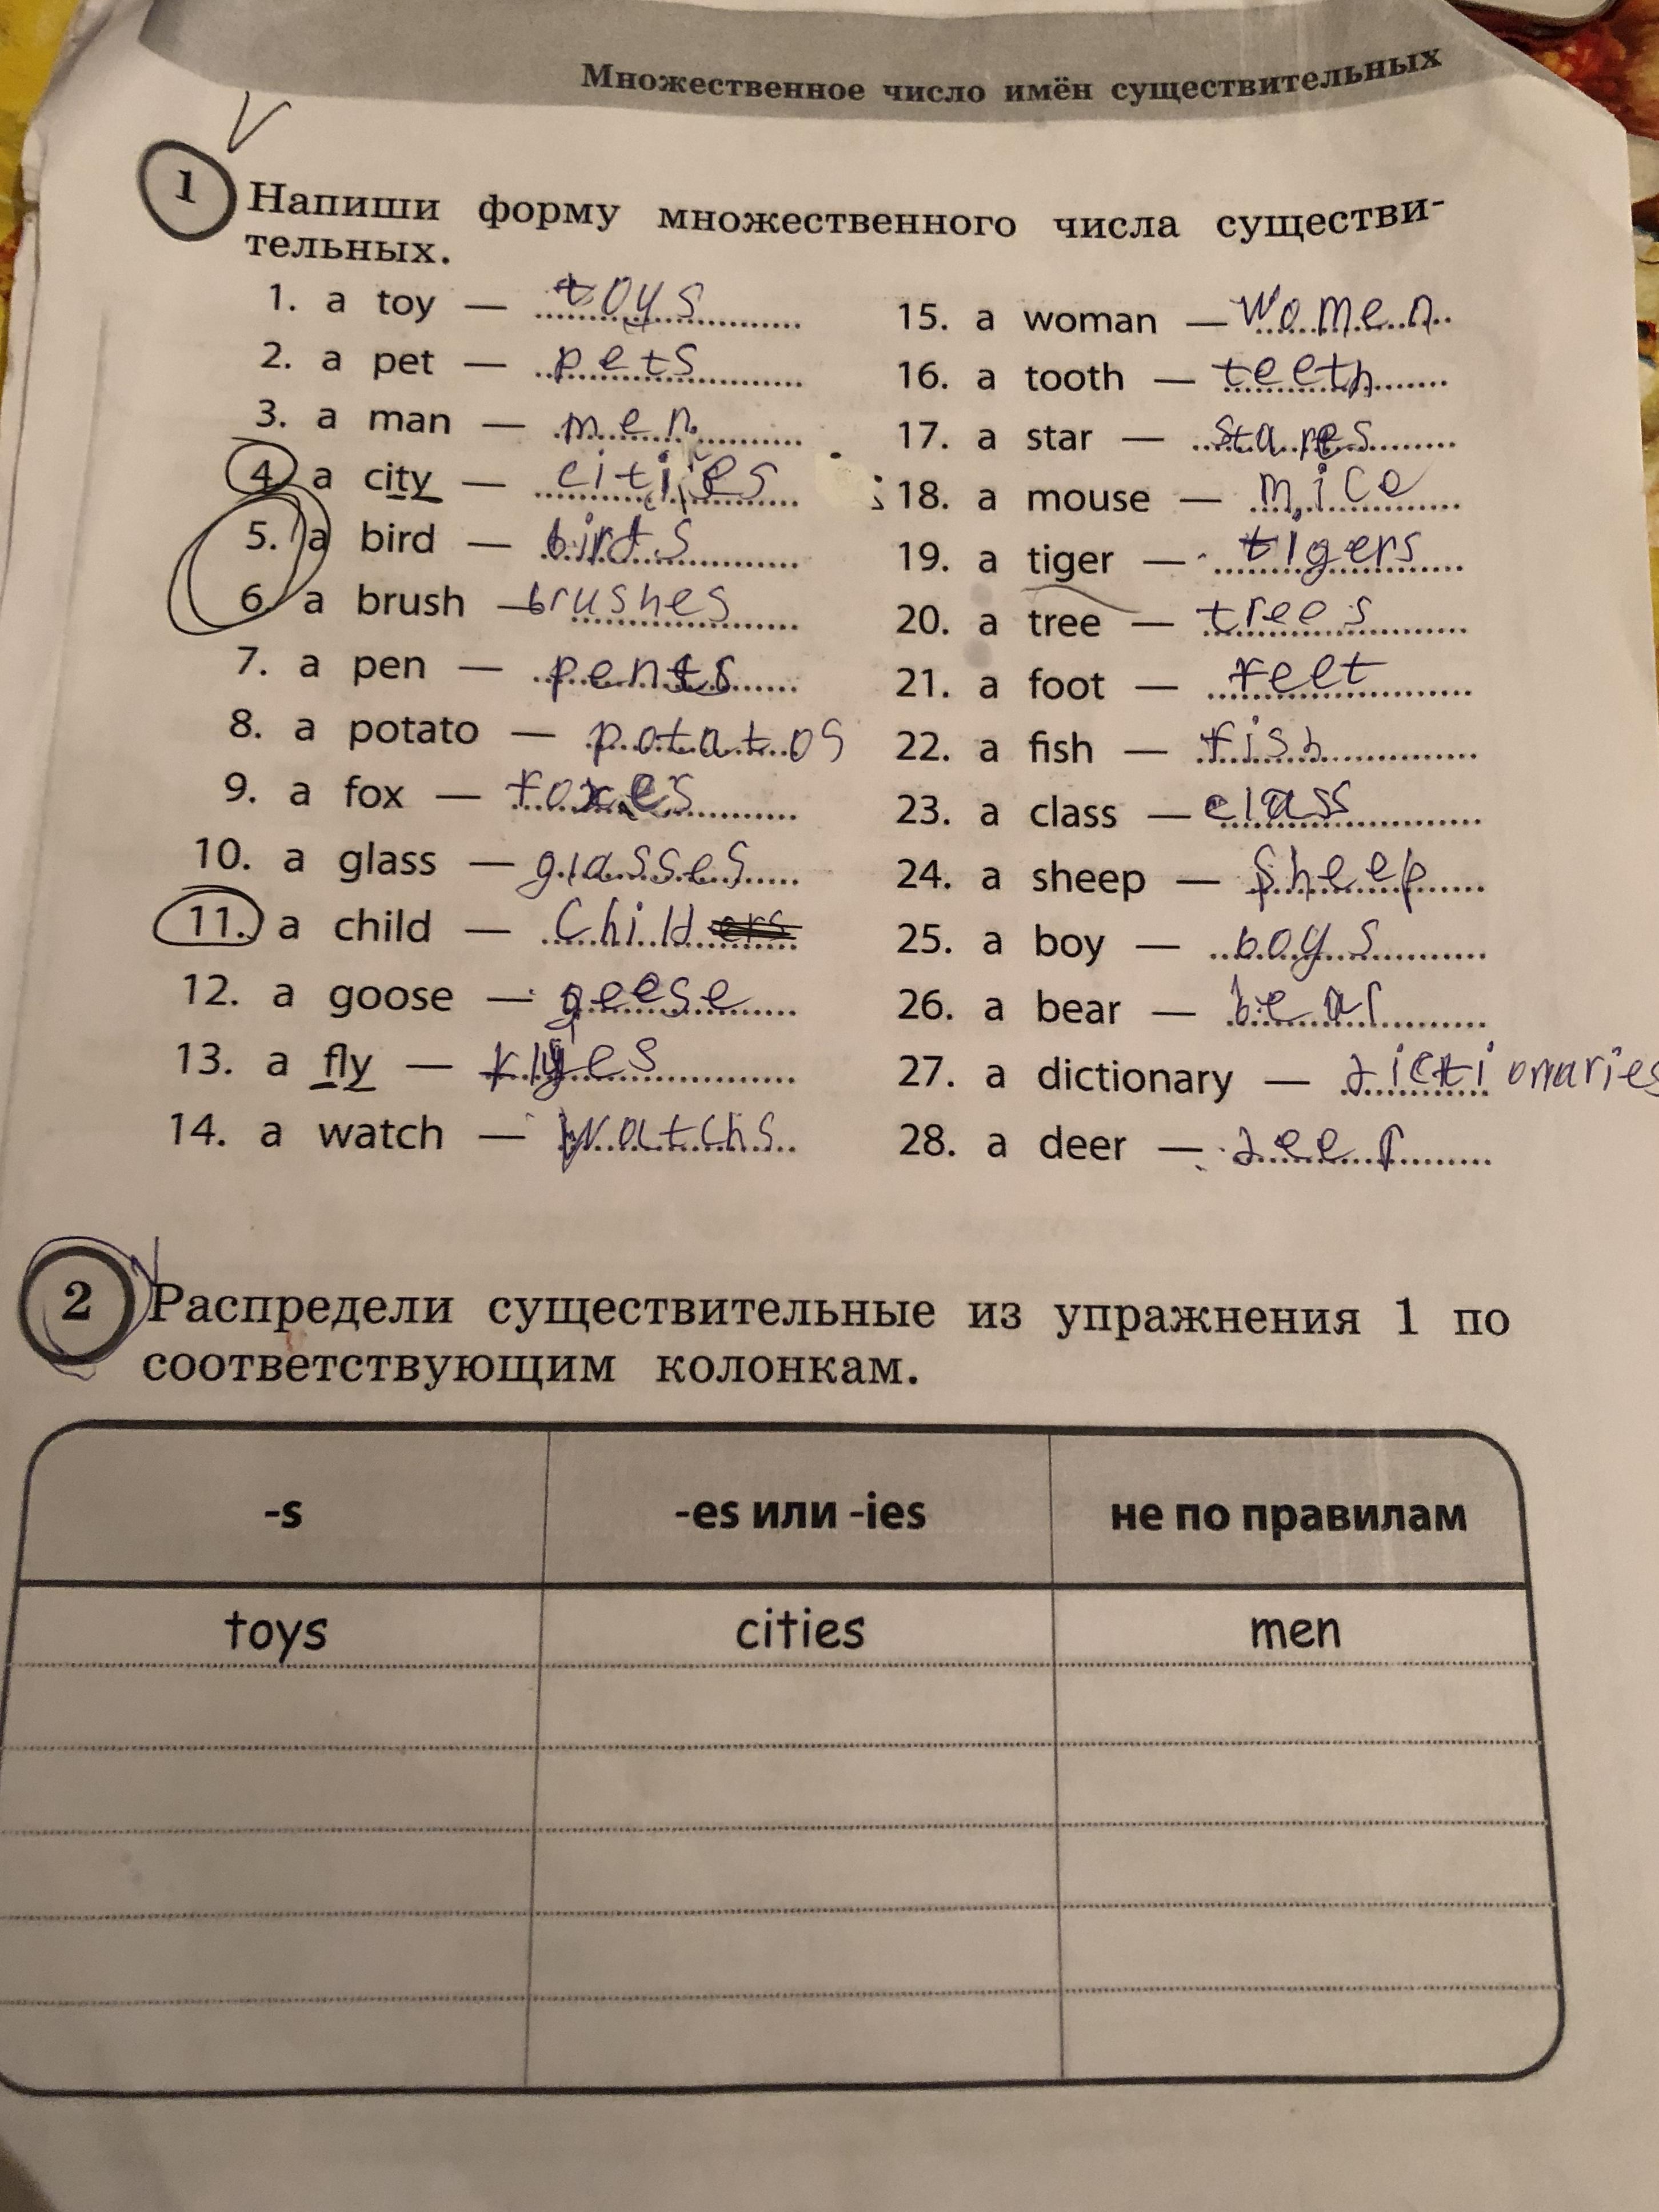 Множественное число имён существительных
1 Напиши форму множественного числа существи-
тельных.
1. a toy — toys
2. a pet — pets
3. a man — men
4. a city — cities
5. a bird — birds
6. a brush — brushes
7. a pen —
8. a potato — potatos
9. a fox — foxes
10. a glass — glasses
11. a child — Child ers
12. a goose — geese
13. a fly —
14. a watch — watchs
15. a woman — women
16. a tooth — teeth
17. a star —
18. a mouse — mice
19. a tiger — tigers
20. a tree — trees
21. a foot — feet
22. a fish — fish
23. a class — class
24. a sheep — sheep
25. a boy — boys
26. a bear — bear
27. a dictionary — dictionaries
28. a deer — deer
2 Распредели существительные из упражнения 1 по
соответствующим колонкам.
-s -es или -ies не по правилам
toys cities men